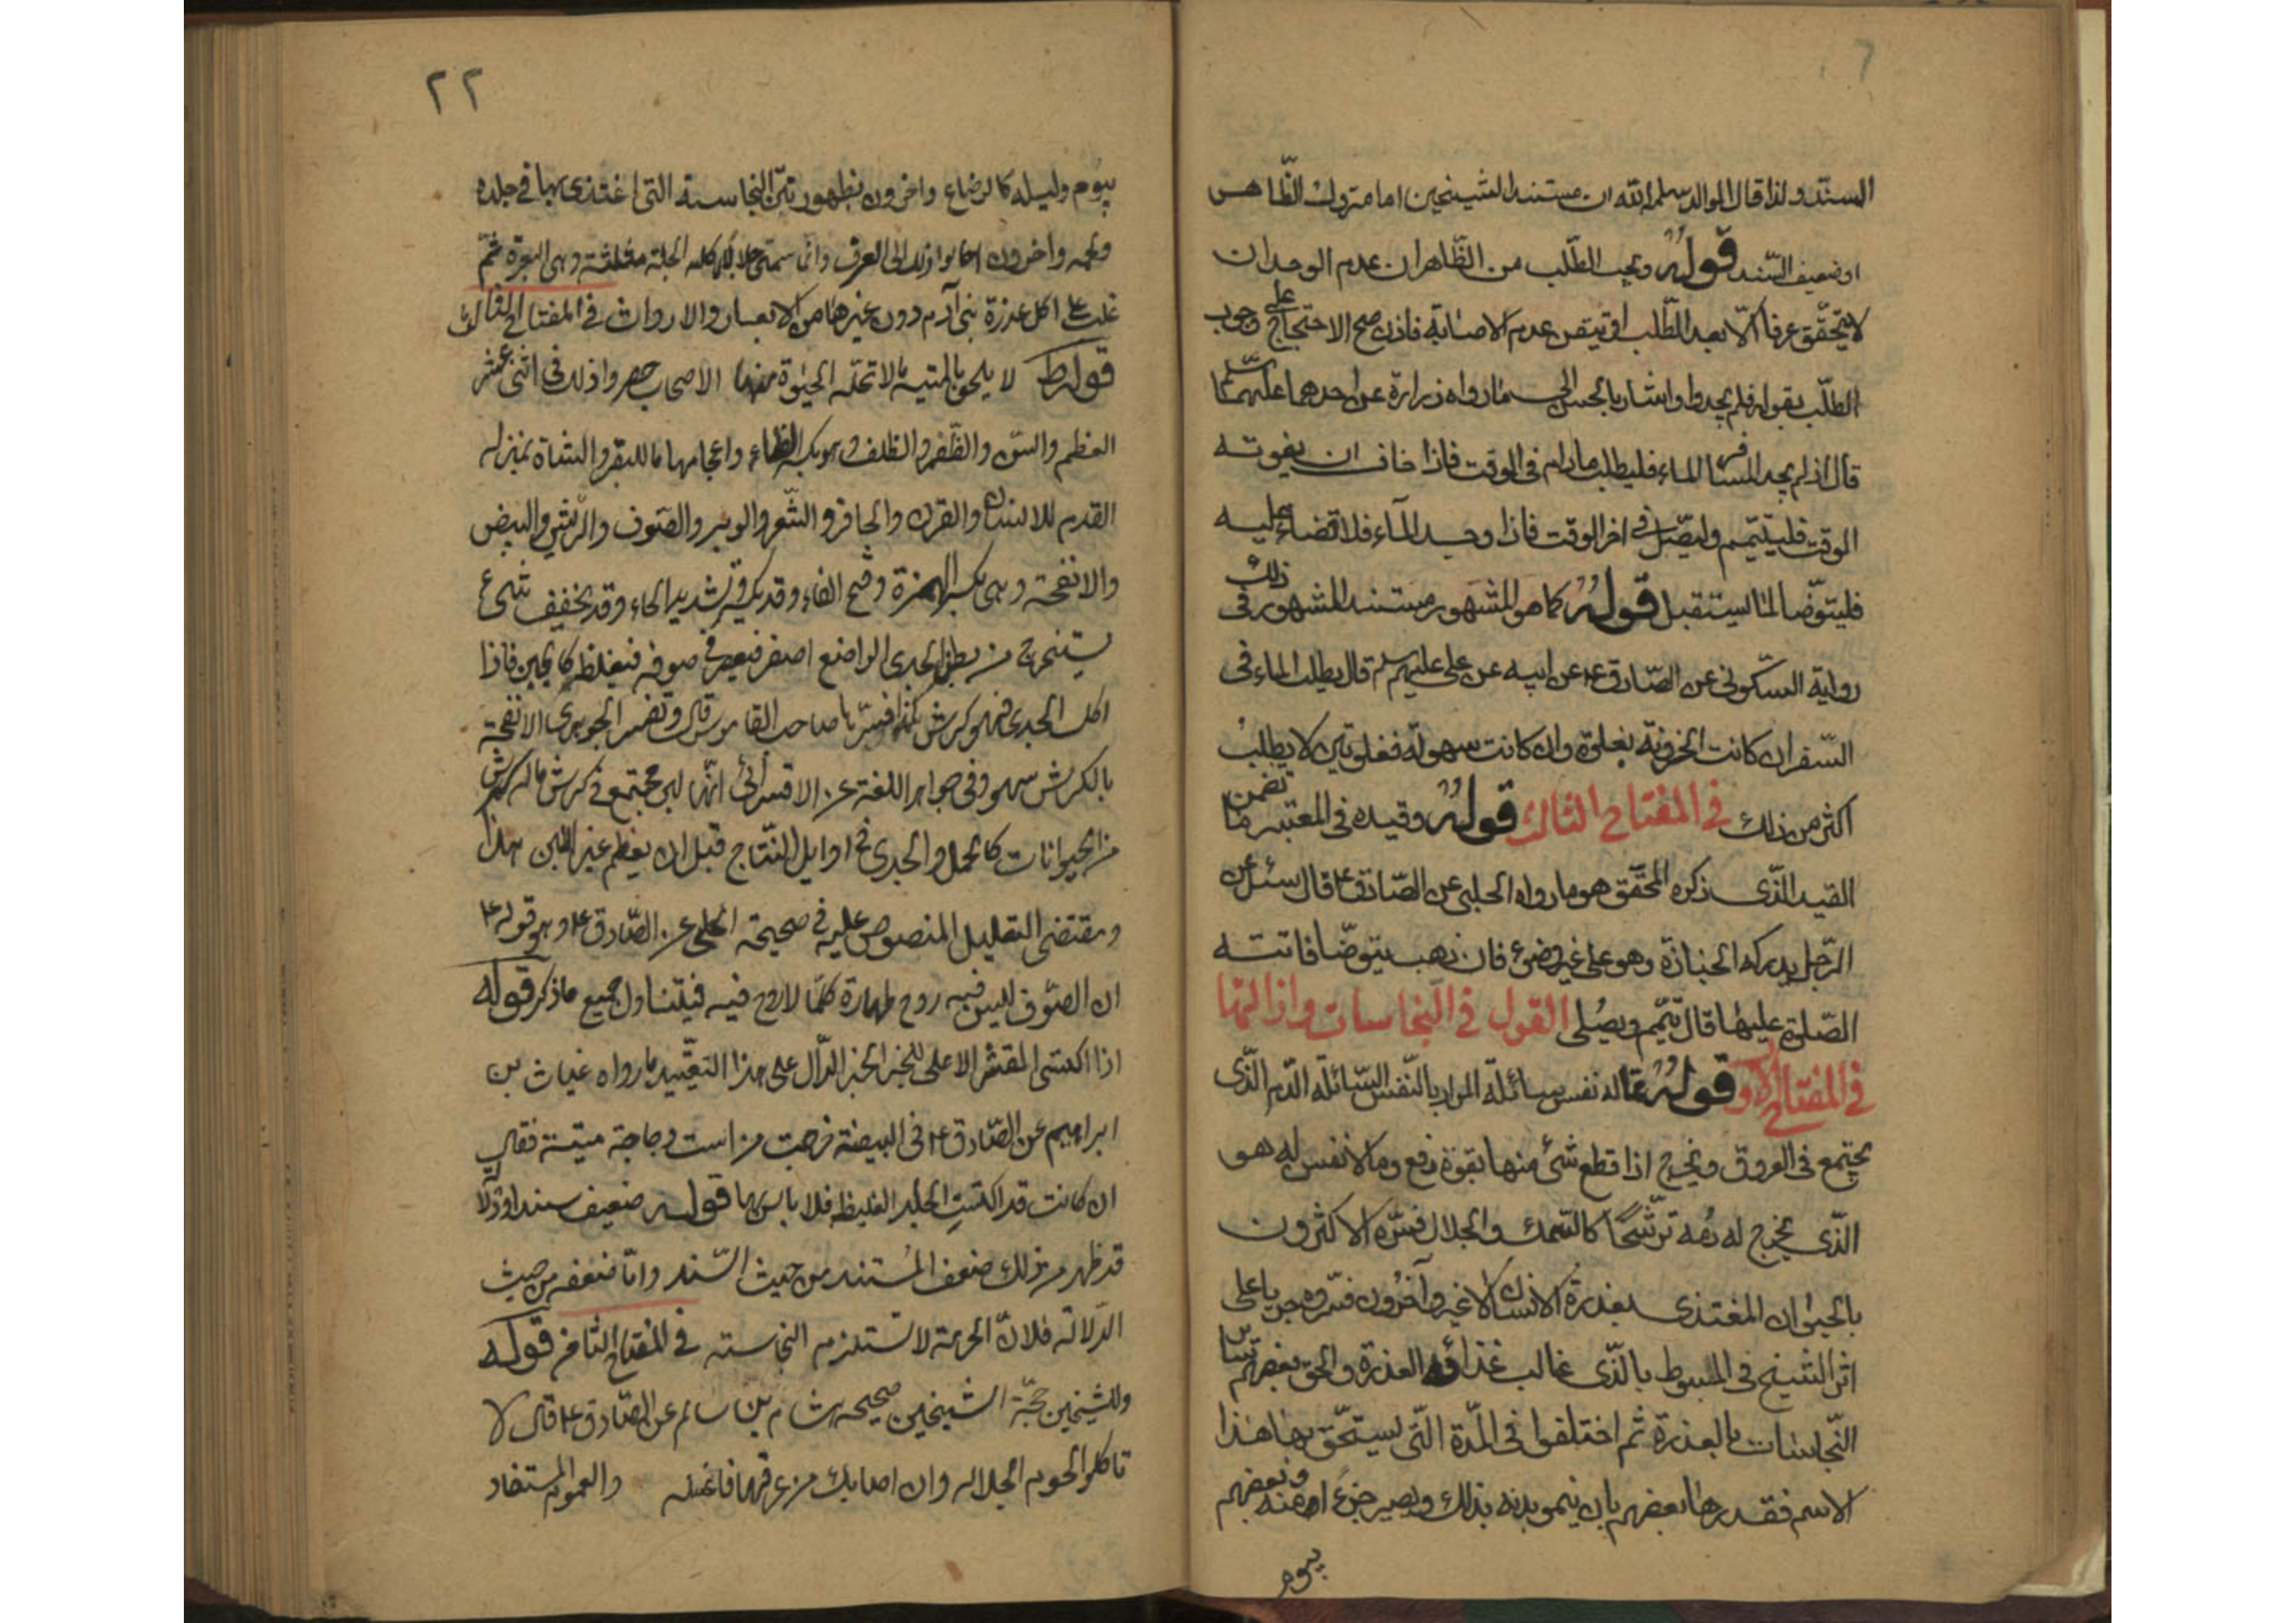 السند ولذا قال الوالد سلمه الله ان مستند الشيخين اما متروك الظاهر
او ضعيف السند قوله ويجب الطلب من الظاهر ان عدم الوجدان
لا يتحقق عرفا الا بعد الطلب او تيقن عدم الاصابة فاذن صح الاحتجاج على وجوب
الطلب بقوله فلم يجدوا واشار بالحسن الى ما رواه زرارة عن احدهما عليهما السلام
قال اذا لم يجد المسافر الماء فليطلب مادام في الوقت فاذا خاف ان يفوته
الوقت فليتيمم وليصل في اخر الوقت فاذا وجد الماء فلا قضاء عليه
فليتوضأ لما يستقبل قوله كما هو المشهور مستند المشهور في ذلك
رواية السكوني عن الصادق ع عن ابيه عن علي عليهم سلم قال يطلب الماء في
السفر ان كانت الحزونة بغلوة وان كانت سهولة فغلوتين لا يطلب
اكثر من ذلك في المفتاح الثالث قوله وقيده في المعتبر ما تضمن
القيد الذي ذكره المحقق هو ما رواه الحلبي عن الصادق ع قال سئل عن
الرجل يدركه الجنازة وهو على غير وضوء فان ذهب يتوضأ فاتته
الصلوة عليها قال يتيمم ويصلي القول في النجاسات وازالتها
في المفتاح الاول قوله مما له نفس سائلة المراد بالنفس السائلة الدم الذي
يجتمع في العروق ويخرج اذا قطع شئ منها بقوة ودفع وما لا نفس له هو
الذي يخرج له دمه ترشحا كالسمك والجلال فسره الاكثرون
بالحيوان المغتذي بعذرة الانسان لا غير وآخرون فسروه جريا على
اثر الشيخ في المبسوط بالذي غالب غذائه العذرة والحق بعضهم سائر
النجاسات بالعذرة ثم اختلفوا في المدة التي يستحق بها هذا
الاسم فقدرها بعضهم بان ينمو بدنه بذلك ويصير جزء منه وبعضهم
بيوم
٢٢
بيوم وليله كالرضاع واخرون بظهور نتن النجاسة التي اغتذى بها في جلده
ولحمه واخرون احالوا ذلك الى العرف وانما سمي جلالا لاكله الجلة مثلثة وهي البعرة ثم
غلب على اكل عذرة بني آدم دون غيرها من الابعار والارواث في المفتاح الثالث
قوله لا يلحق بالميتة ما لا تحله الحيوة منها الاصحاب حصروا ذلك في اثنى عشر
العظم والسن والظفر والظلف وهو بكسر الظاء واعجامها ما للبقر والشاة بمنزلة
القدم للانسان والقرن والحافر والشعر والوبر والصوف والريش والبيض
والانفحة وهي بكسر الهمزة وفتح الفاء وقد يكسر وتشديد الحاء وقد يخفف شئ
يستخرج من بطن الجدي الراضع اصفر فيعصر في صوفه فيغلظ كالجبن فاذا
اكل الجدي فهو كرش كذا فسرها صاحب القاموس قال وتفسير الجوهري الانفحة
بالكرش سهو وفي جواهر اللغة عن الاقسرائي انها لبن مجتمع في كرش ماله كرش
من الحيوانات كالحمل والجدي في اوايل النتاج قبل ان يطعم غير اللبن هذا
ومقتضى التعليل المنصوص عليه في صحيحة الحلبي عن الصادق ع وهو قوله ع
ان الصوف ليس فيه روح طهارة كلما لا روح فيه فيتناول جميع ما ذكر قوله
اذا اكتسى القشر الاعلى للخبر الخبر الدال على هذا التقييد ما رواه غياث بن
ابراهيم عن الصادق ع في البيضة خرجت من است دجاجة ميتة فقال
ان كانت قد اكتست الجلد الغليظ فلا باس بها قوله ضعيف سندا ودلالة
قد ظهر من ذلك ضعف المستند من حيث السند واما ضعفه من حيث
الدلالة فلان الحرمة لا تستلزم النجاسته في المفتاح الثامن قوله
وللشيخين حجة الشيخين صحيحه هشام بن سالم عن الصادق ع قال لا
تاكلوا لحوم الجلاله وان اصابك من عرقها فاغسله والعموم المستفاد